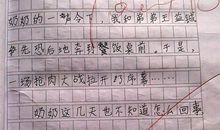 奶奶的一声令下，我和弟弟王益铖
争先恐后地奔到餐饭桌前。于是，
一场抢肉大战拉开了序幕……
奶奶这几天也不知道怎么回事